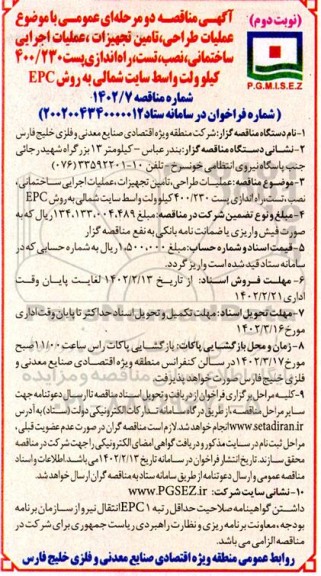 (نوبت دوم)
آگهی مناقصه دو مرحله‌ای عمومی با موضوع
عملیات طراحی،تامین تجهیزات ،عملیات اجرایی
ساختمانی،نصب،تست،راه اندازی پست ۴۰۰/۲۳۰
کیلو ولت واسط سایت شمالی به روش EPC
P.G.M.I.S.E.Z
شماره مناقصه ۱۴۰۲/۷
( شماره فراخوان در سامانه ستاد ۲۰۰۲۰۰۴۳۴۰۰۰۰۰۱۲)
۱-نام دستگاه مناقصه گزار: شرکت منطقه ویژه اقتصادی صنایع معدنی و فلزی خلیج فارس
۲- نشانی دستگاه مناقصه گزار: بندرعباس – کیلومتر ۱۳ بزرگراه شهید رجائی
جنب پاسگاه نیروی انتظامی خونسرخ – تلفن ۱۰-۳۳۵۹۲۲۰۱ (۰۷۶)
۳-موضوع مناقصه: عملیات طراحی،تامین تجهیزات،عملیات اجرایی ساختمانی،
نصب،تست،راه اندازی پست ۴۰۰/۲۳۰ کیلوولت واسط سایت شمالی به روش EPC
۴-مبلغ و نوع تضمین شرکت در مناقصه: مبلغ ۱۳۴،۱۳۳،۰۰۴،۴۸۹ ریال که به
صورت فیش واریزی یا ضمانت نامه بانکی به نفع مناقصه گزار
۵- قیمت اسناد و شماره حساب: مبلغ ۱،۵۰۰،۰۰۰ ریال به شماره حسابی که در
سامانه ستاد قید شده است واریز گردد.
۶- مهلت فروش اسناد: از تاریخ ۱۴۰۲/۲/۱۳ لغایت پایان وقت
اداری ۱۴۰۲/۲/۲۱
۷-مهلت تحویل اسناد: مهلت تکمیل و تحویل اسناد حداکثر تا پایان وقت اداری
مورخ ۱۴۰۲/۳/۱۶
۸- زمان و محل بازگشایی پاکات: بازگشایی پاکات راس ساعت ۱۱/۰۰ صبح
مورخ ۱۴۰۲/۳/۱۷ در سالن کنفرانس منطقه ویژه اقتصادی صنایع معدنی و
فلزی خلیج فارس صورت خواهد پذیرفت
۹-کلیه مراحل برگزاری فراخوان از دریافت و تحویل اسناد مناقصه تا ارسال دعوتنامه جهت
سایر مراحل مناقصه، از طریق درگاه سامانه تدارکات الکترونیکی دولت (ستاد) به آدرس
www.setadiran.ir انجام خواهد شد. لازم است مناقصه گران در صورت عدم عضویت قبلی،
مراحل ثبت نام در سایت مذکور و دریافت گواهی امضای الکترونیکی را جهت شرکت در مناقصه
محقق سازند. تاریخ انتشار فراخوان در سامانه تاریخ ۱۴۰۲/۲/۱۳ می باشد. اطلاعات و اسناد
مناقصه عمومی و ارسال دعوتنامه از طریق سامانه ستاد به مناقصه گران ارسال خواهد شد.
۱۰-نشانی سایت شرکت: www.PGSEZ.ir
داشتن گواهینامه صلاحیت حداقل رتبه ۱ EPC انتقال نیرو از سازمان برنامه
بودجه، معاونت برنامه ریزی و نظارت راهبردی ریاست جمهوری برای شرکت در
مناقصه الزامی می باشد.
روابط عمومی منطقه ویژه اقتصادی صنایع معدنی و فلزی خلیج فارس